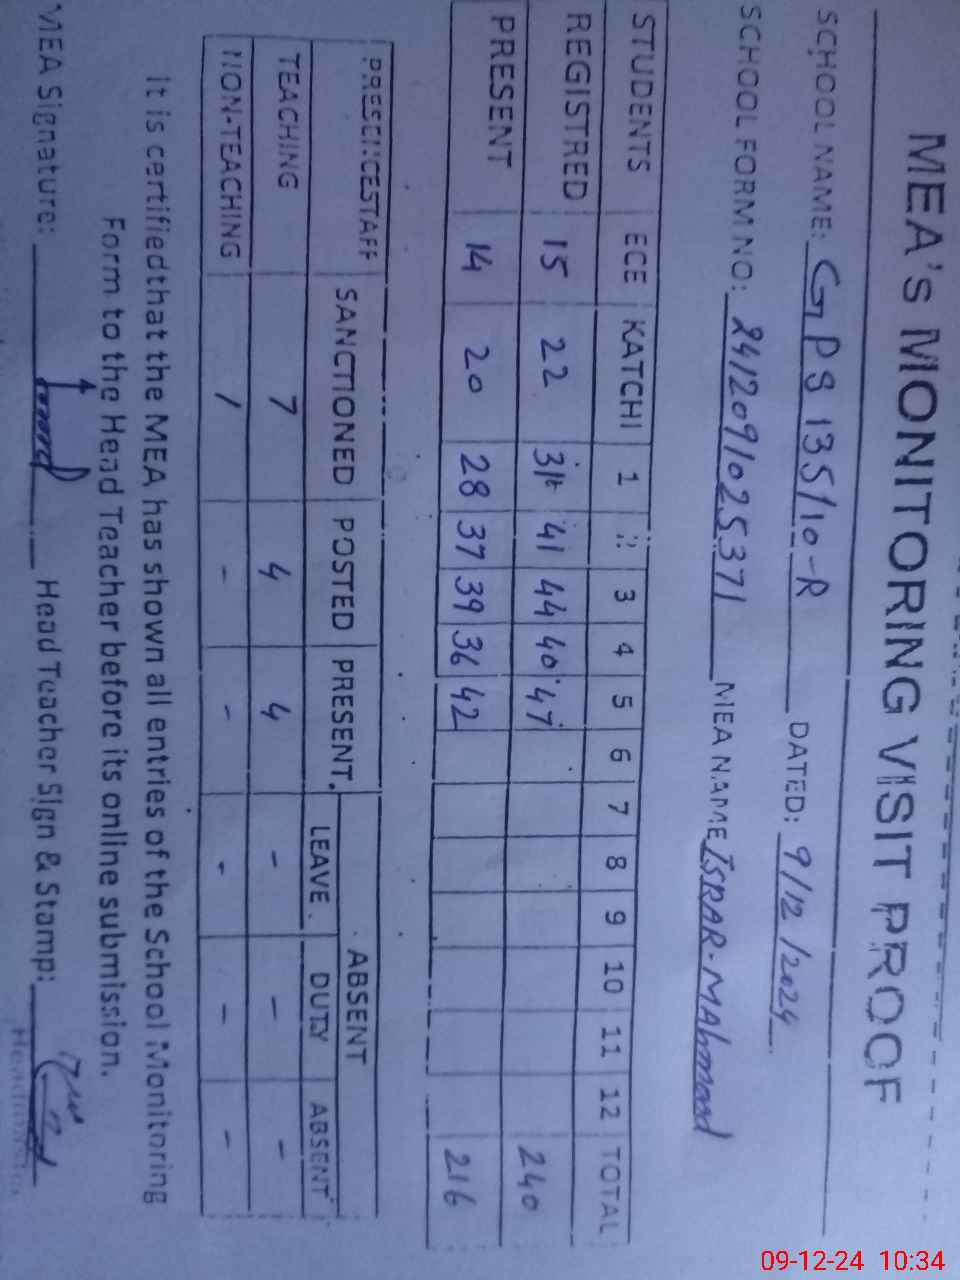 MEA's MONITORING VISIT PROOF
SCHOOL NAME: GPS 135/10-R DATED: 9/12/2024
SCHOOL FORM NO: 241209/025371 MEA NAME ISRAR-MAhmood
STUDENTS ECE KATCHI 1 2 3 4 5 6 7 8 9 10 11 12 TOTAL
REGISTRED 15 22 31 41 44 40 47 240
PRESENT 14 20 28 37 39 36 42 216
PRESENCESTAFF SANCTIONED POSTED PRESENT ABSENT
LEAVE DUTY ABSENT
TEACHING 7 4 4 - - -
NON-TEACHING / - - - - -
It is certifiedthat the MEA has shown all entries of the School Monitoring
Form to the Head Teacher before its online submission.
MEA Signature: Head Teacher Sign & Stamp:
Headmaster
09-12-24 10:34